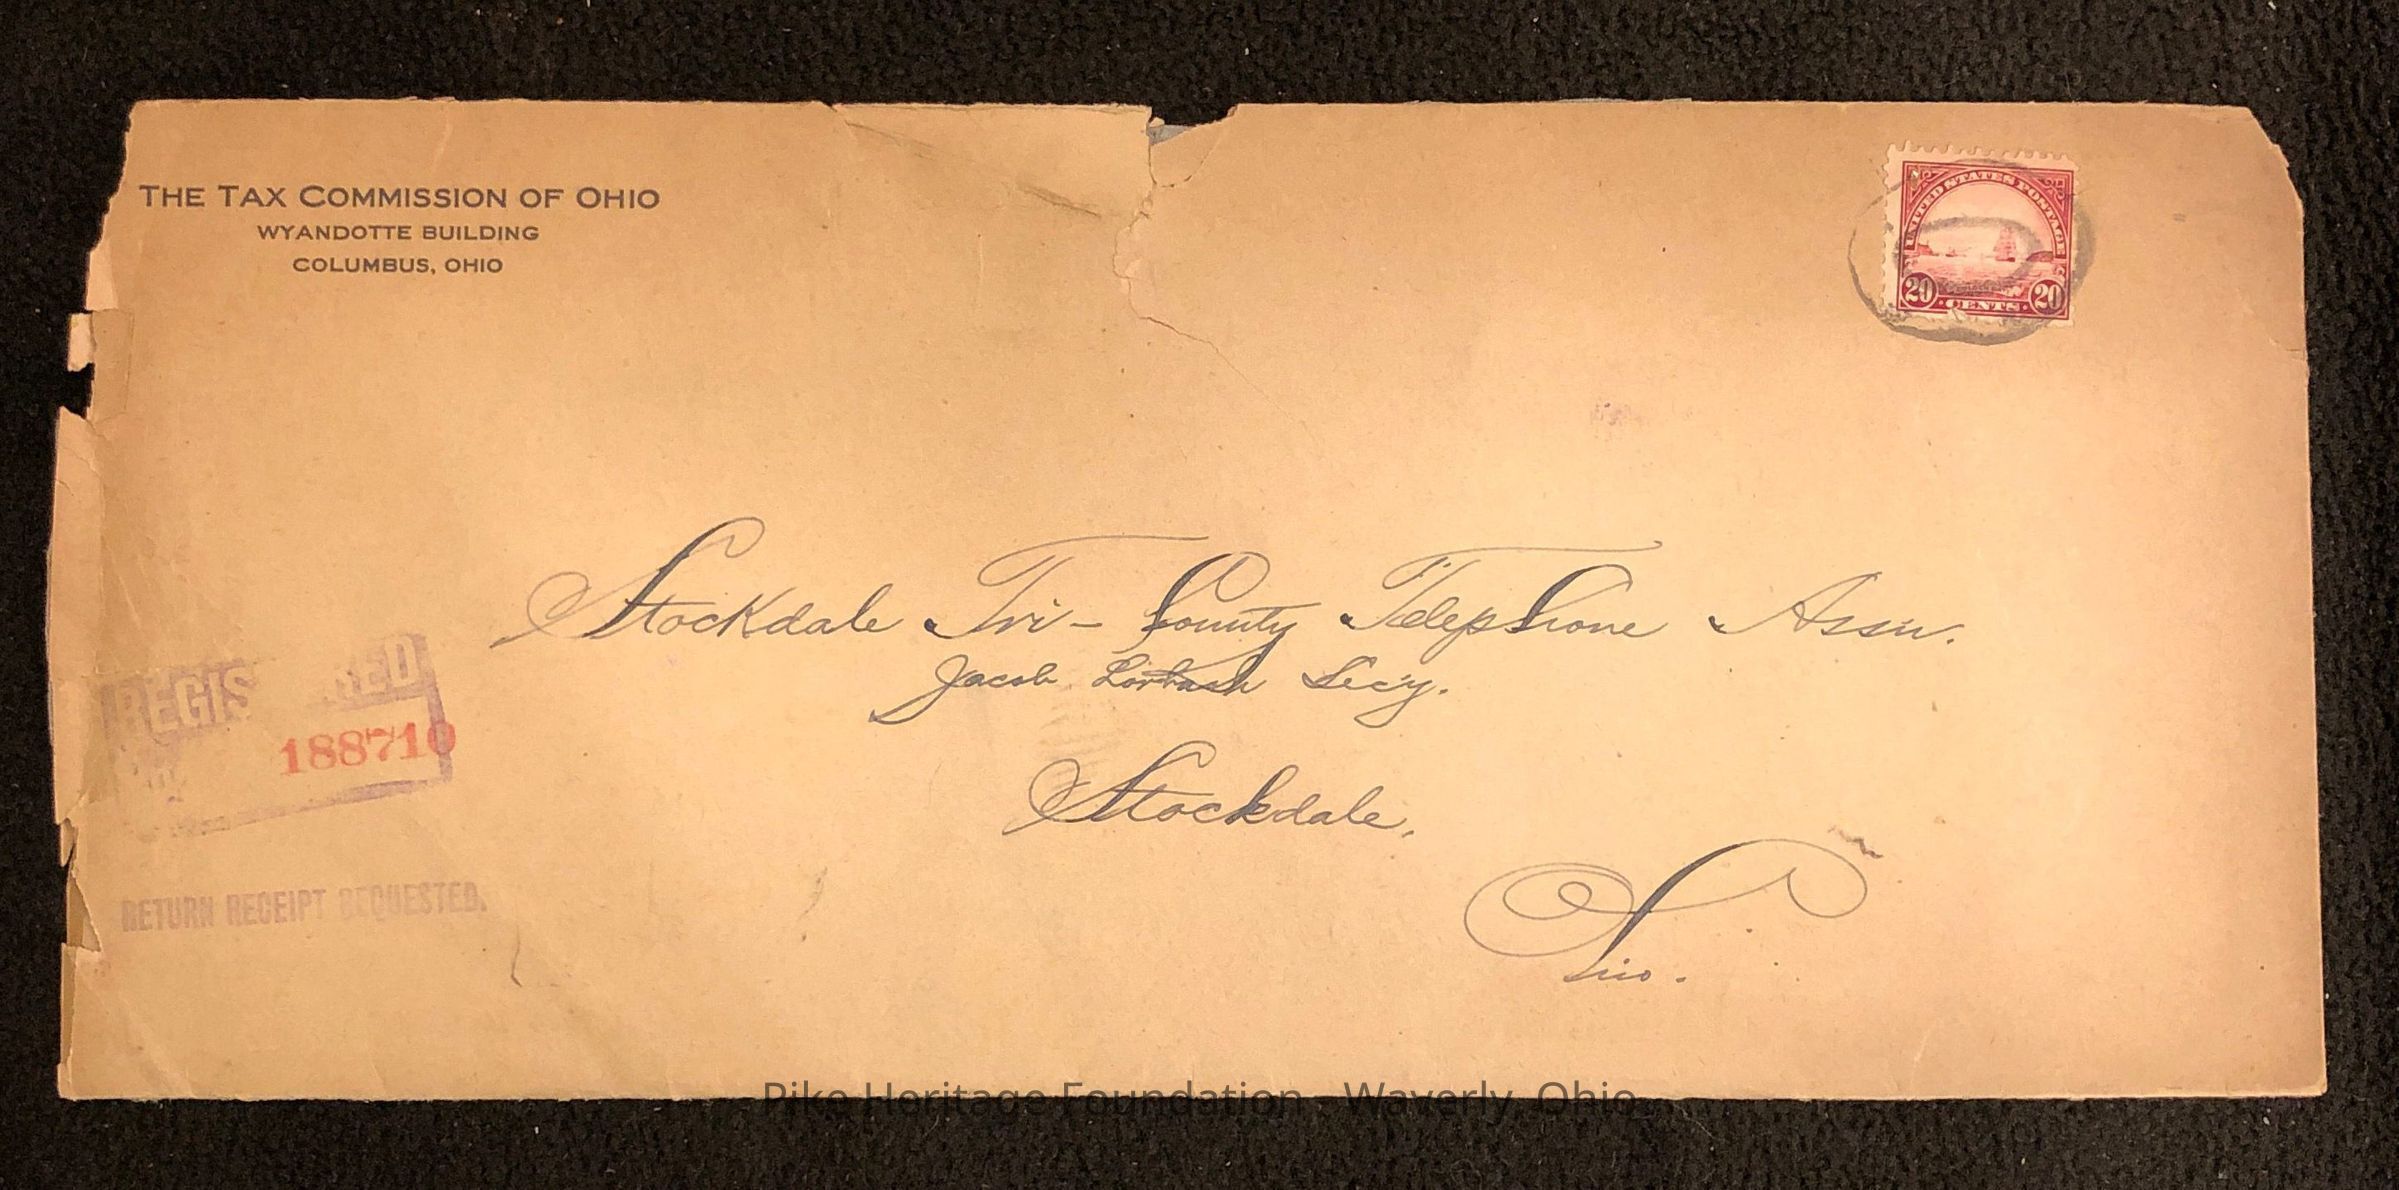 THE TAX COMMISSION OF OHIO
WYANDOTTE BUILDING
COLUMBUS, OHIO
UNITED STATES POSTAGE
20 CENTS 20
Stockdale Tri-County Telephone Assn.
Jacob Lorbach Secy.
Stockdale,
Ohio.
REGIS RED
188710
RETURN RECEIPT REQUESTED.
Pike Heritage Foundation, Waverly, Ohio